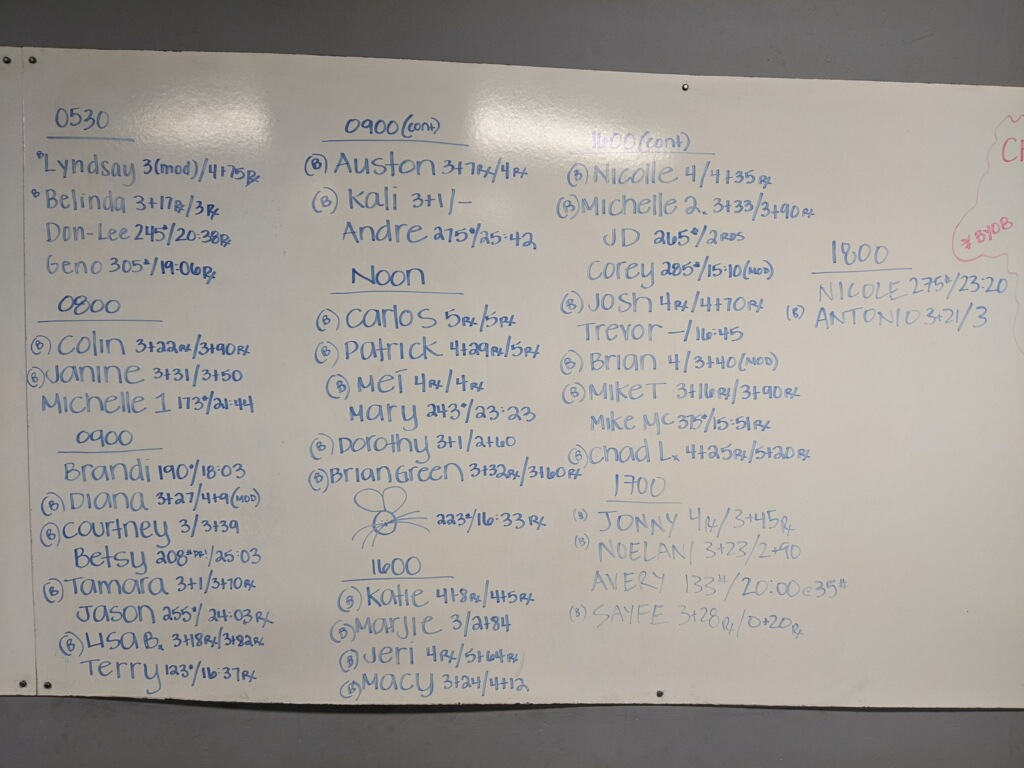 0530
(B) Lyndsay 3(mod)/4+75Rx
(B) Belinda 3+17Rx/3Rx
Don-Lee 245#/20:38Rx
Geno 305#/19:06Rx
0800
(B) Colin 3+22Rx/3+90Rx
(B) Janine 3+31/3+50
Michelle 1 173#/21:44
0900
Brandi 190#/18:03
(B) Diana 3+27/4+9(MOD)
(B) Courtney 3/3+39
Betsy 208# PR!/25:03
(B) Tamara 3+1/3+70Rx
Jason 255#/24:03Rx
(B) Lisa B. 3+18Rx/3+82Rx
Terry 123#/16:37Rx
0900(cont)
(B) Auston 3+7Rx/4Rx
(B) Kali 3+1/-
Andre 275#/25:42
Noon
(B) Carlos 5Rx/5Rx
(B) Patrick 4+29Rx/5Rx
(B) Mei 4Rx/4Rx
Mary 243#/23:23
(B) Dorothy 3+1/2+60
(B) Brian Green 3+32Rx/3+60Rx
223#/16:33Rx
1600
(B) Katie 4+8Rx/4+5Rx
(B) Marjie 3/2+84
(B) Jeri 4Rx/5+64Rx
(B) Macy 3+24/4+12
1600(cont)
(B) Nicolle 4/4+35Rx
(B) Michelle 2. 3+33/3+90Rx
JD 265#/2RDS
Corey 285#/15:10(MOD)
(B) Josh 4Rx/4+70Rx
Trevor -/16:45
(B) Brian 4/3+40(MOD)
(B) Mike T 3+16Rx/3+90Rx
Mike Mc 375#/15:51Rx
(B) Chad L. 4+25Rx/5+20Rx
1700
(B) JONNY 4Rx/3+45Rx
(B) NOELANI 3+23/2+90
AVERY 133#/20:00@35#
(B) SAYFE 3+28Rx/0+20Rx
1800
NICOLE 275#/23:20
(B) ANTONIO 3+21/3
* BYOB